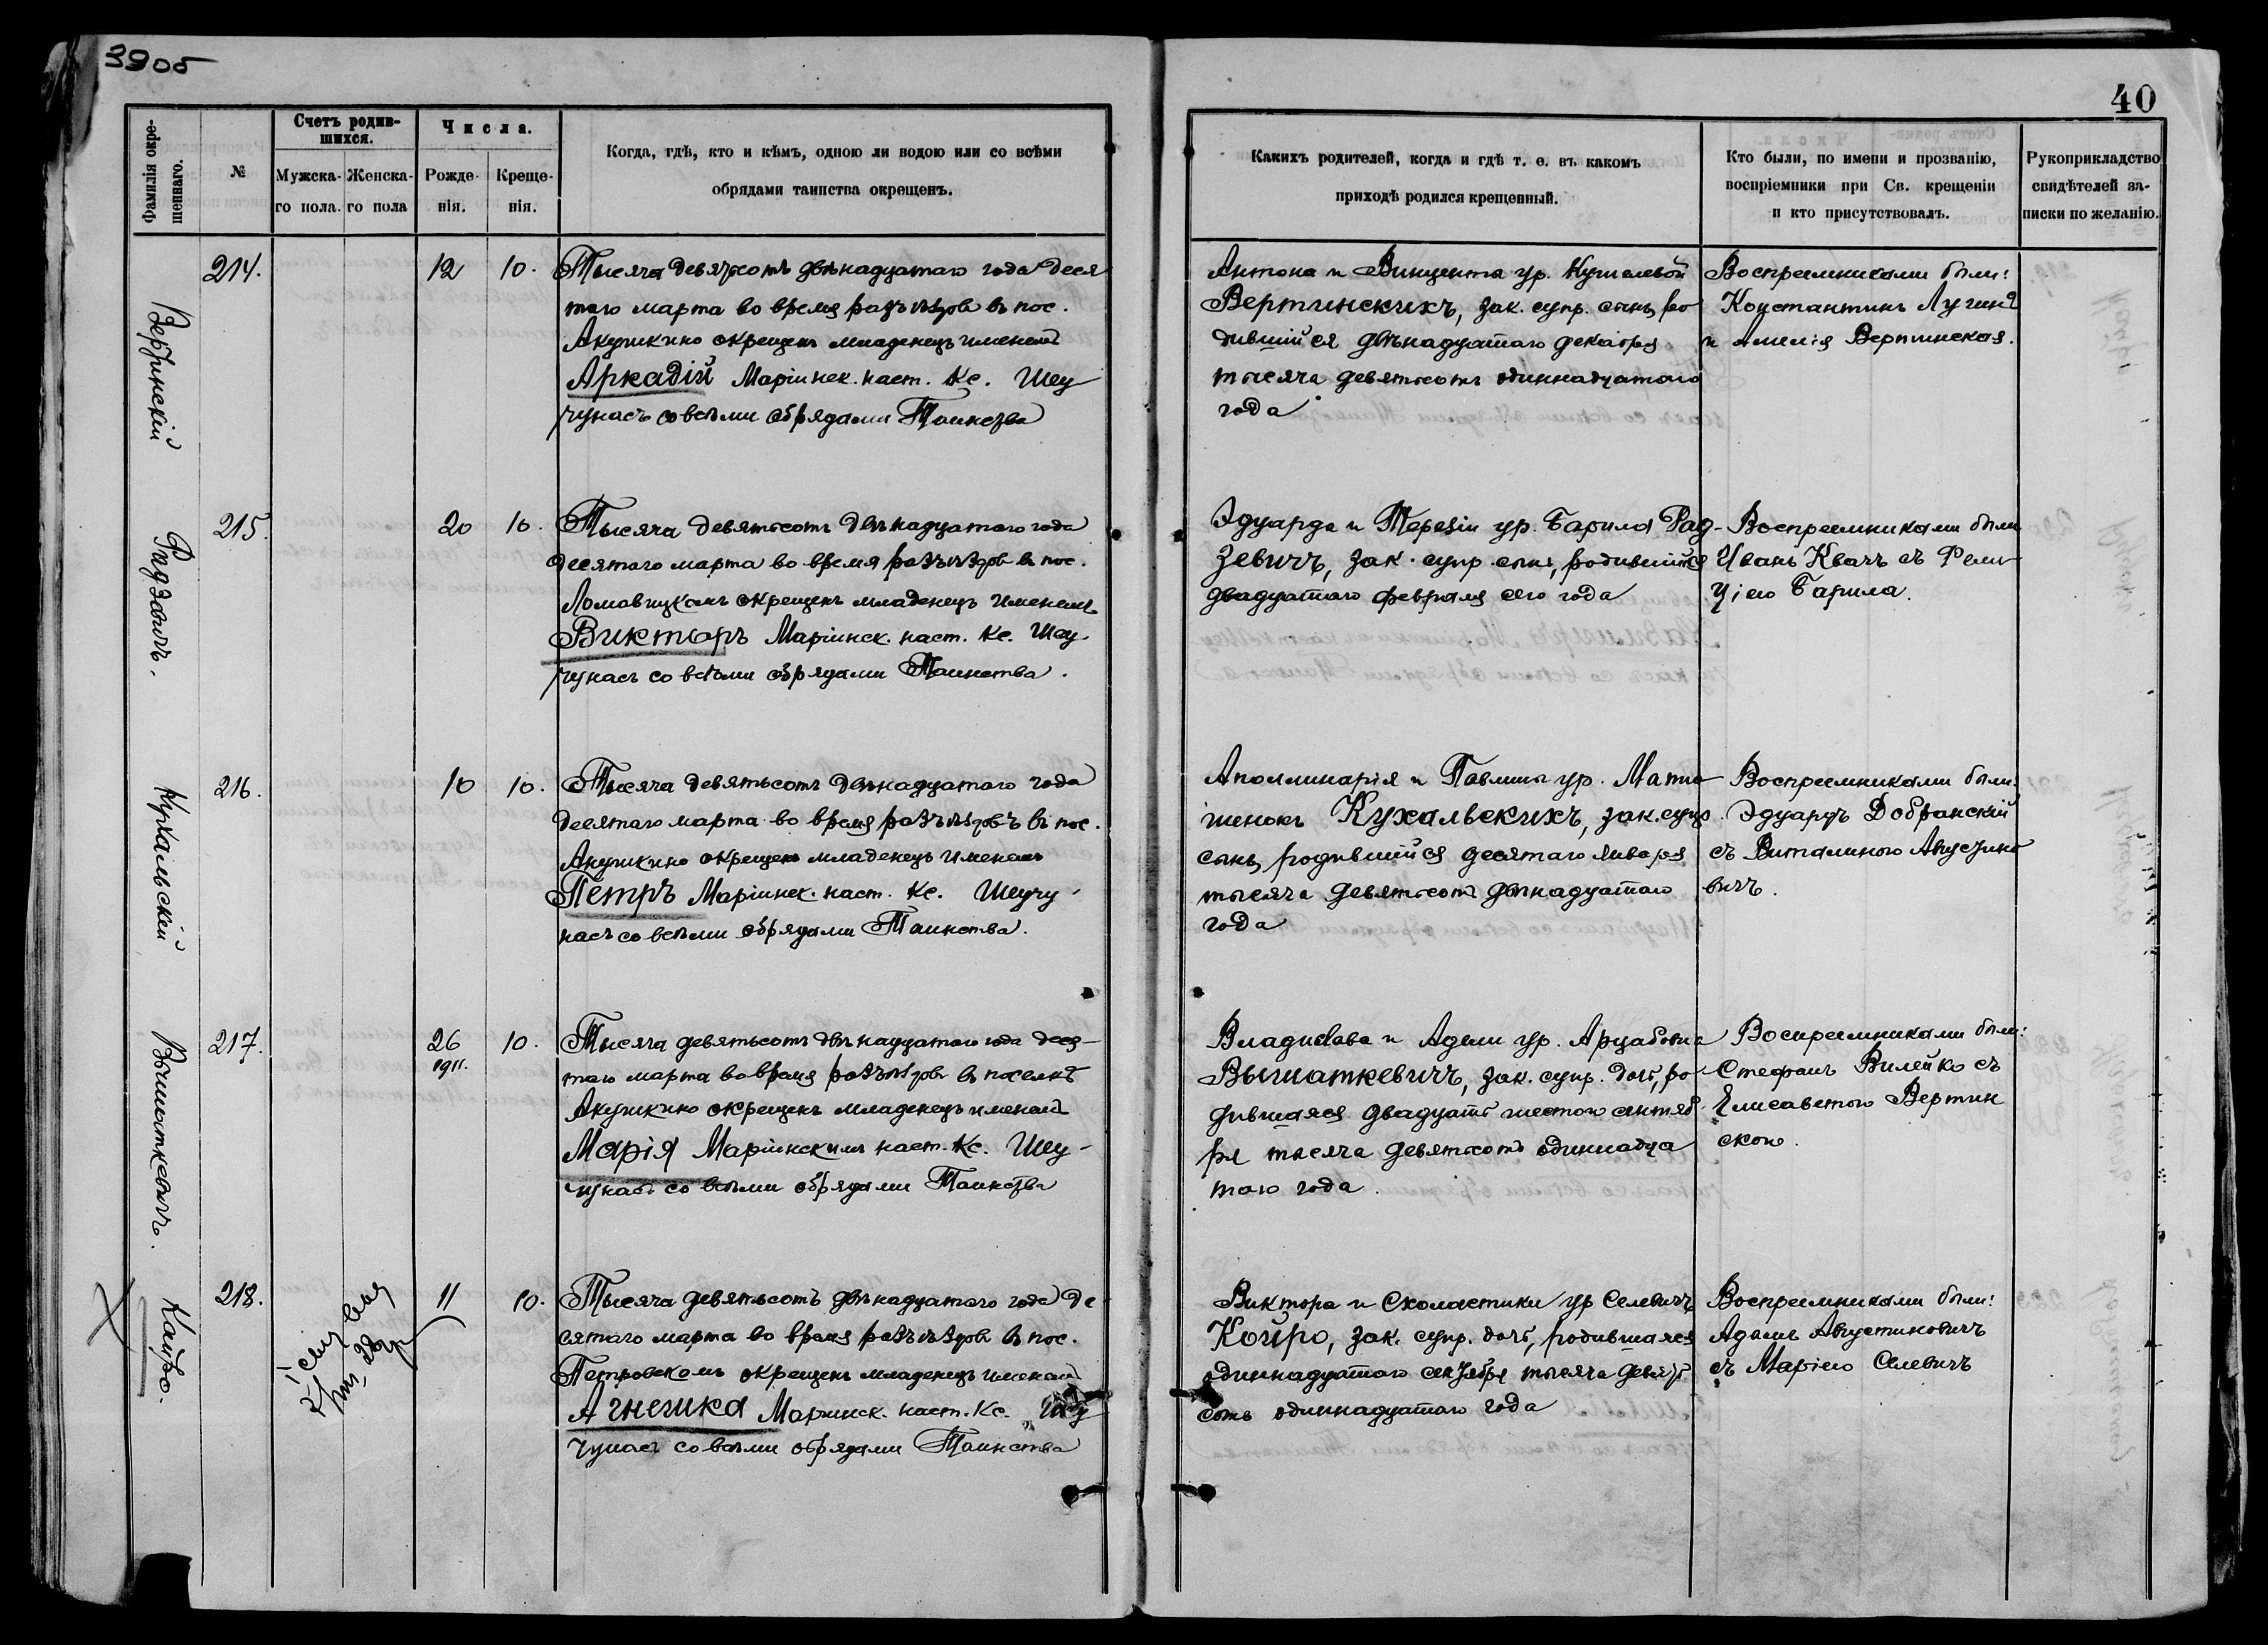 39об
40
Фамилія окрещеннаго.
№
Счетъ родившихся.
Мужска-го пола.
Женска-го пола
Числа.
Рожде-нія.
Креще-нія.
Когда, гдѣ, кто и кѣмъ, одною ли водою или со всѣми
обрядами таинства окрещенъ.
Какихъ родителей, когда и гдѣ т. е. въ какомъ
приходѣ родился крещенный.
Кто были, по имени и прозванію,
воспріемники при Св. крещеніи
и кто присутствовалъ.
Рукоприкладство
свидѣтелей за-
писки по желанію.
Вертинскій
214.
12
10.
Тысяча девятьсотъ двѣнадцатаго года деся
таго марта во время разъѣздовъ въ пос.
Акушкино окрещенъ младенецъ именемъ
Аркадій Маріинск. наст. Кс. Шеу
чунасъ со всѣми обрядами Таинства
Антона и Винцента ур.
Вертинскихъ, зак. супр. сынъ, ро
дившійся двѣнадцатаго декабря
тысяча девятьсотъ одиннадцатаго
года
Воспреемниками были:
Константинъ
и Амелія Вертинская.
Радзевичъ.
215.
20
10.
Тысяча девятьсотъ двѣнадцатаго года
десятаго марта во время разъѣздовъ въ пос.
окрещенъ младенецъ именемъ
Викторъ Маріинск. наст. Кс. Шеу-
чунасъ со всѣми обрядами Таинства.
Эдуарда и Терезіи ур. Барила Рад-
зевичъ, зак. супр. сынъ, родившійся
двадцатаго февраля сего года
Воспреемниками были
Иванъ Квачъ съ Фели-
ціею Барила.
Кухальскій
216.
10
10.
Тысяча девятьсотъ двѣнадцатаго года
десятаго марта во время разъѣздовъ въ пос.
Акушкино окрещенъ младенецъ именемъ
Петръ Маріинск. наст. Кс. Шеучу-
насъ со всѣми обрядами Таинства.
Аполлинарія и Павлины ур. Матю
шенокъ Кухальскихъ, зак. супр.
сынъ, родившійся десятаго января
тысяча девятьсотъ двѣнадцатаго
года
Воспреемниками были:
Эдуардъ Добранскій
съ Виталиною Августино
вичъ.
Вышаткевичъ.
217.
26
1911.
10.
Тысяча девятьсотъ двѣнадцатаго года деся-
таго марта во время разъѣздовъ въ поселкѣ
Акушкино окрещенъ младенецъ именемъ
Марія Маріинскимъ наст. Кс. Шеу-
чунасъ со всѣми обрядами Таинства
Владислава и Адели ур.
Вышаткевичъ, зак. супр. дочь, ро
дившаяся двадцать шестого сентяб
ря тысяча девятьсотъ одиннадца
таго года.
Воспреемниками были:
Стефанъ Вилейко съ
Елисаветою Вертин
скою.
Койро.
218.
11
10.
Тысяча девятьсотъ двѣнадцатаго года де-
сятаго марта во время разъѣздовъ въ пос.
Петровскомъ окрещенъ младенецъ именемъ
Агнешка Маріинск. наст. Кс. Шеу
чунасъ со всѣми обрядами Таинства
Виктора и Схоластики ур Селевичъ
Койро, зак. супр. дочь, родившаяся
одиннадцатаго октября тысяча девять
сотъ одиннадцатаго года
Воспреемниками были:
Адамъ Августиновичъ
съ Маріею Селевичъ